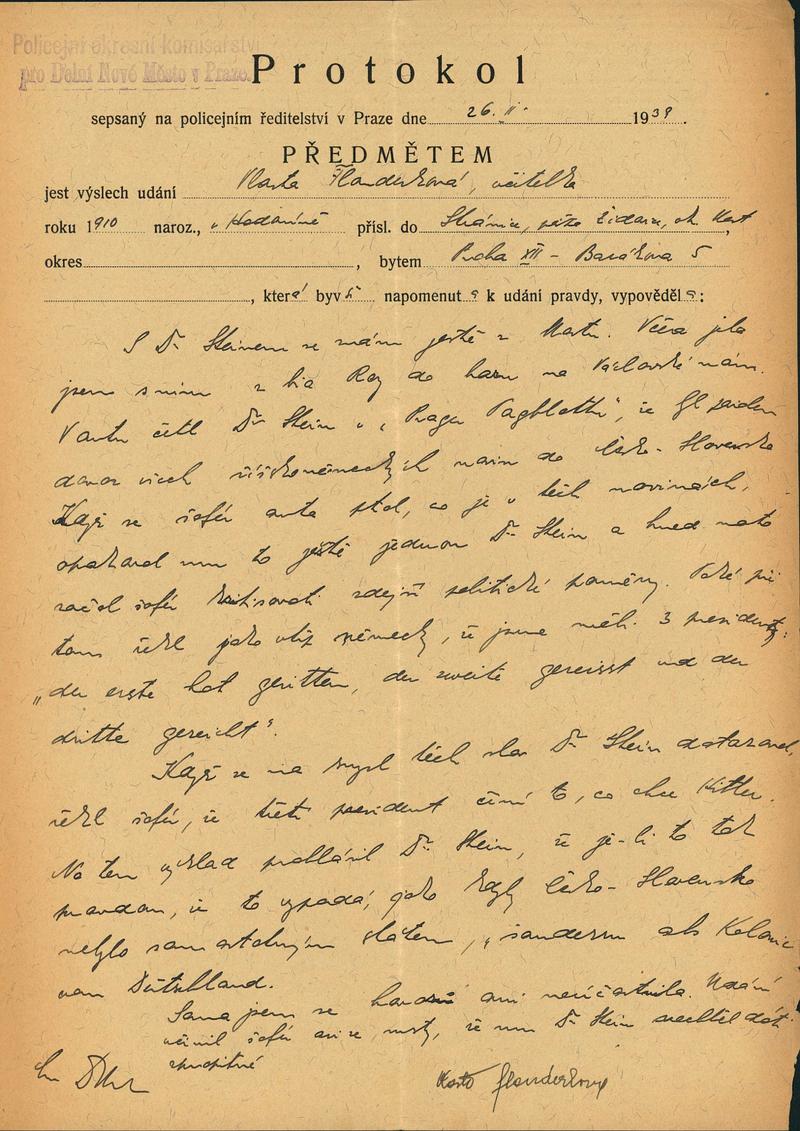 Policejní okresní komisařství
pro Dolní Nové Město v Praze.
Protokol
sepsaný na policejním ředitelství v Praze dne 26. II. 1939.
PŘEDMĚTEM
jest výslech udání Marta Flanderková, učitelka
roku 1910 naroz., v Hodoníně přísl. do
okres , bytem Praha XII - 5
, která byvši napomenuta k udání pravdy, vypověděla:
S Dr. Steinem se znám ještě z Včera jela
jsem s ním z Ria Roy do baru na Václavské nám.
V autu četl Dr. Stein v „Prager Tagblattu“, že
dovoz všech říšskoněmeckých novin do Česko-Slovenska
Když se šofér auta ptal, co je v těch novinách,
opakoval mu to ještě jednou Dr. Stein a hned nato
začal šofér kritisovati zdejší politické poměry. Také při
tom řekl jako vtip německy, že jsme měli 3 presidenty:
„der erste hat geritten, der zweite gereisst und der
dritte gereicht“.
Když se na smysl těch slov Dr. Stein dotazoval,
řekl šofér, že třetí president činí to, co chce Hitler.
Na ten výklad prohlásil Dr. Stein, že je-li to tak
pravdou, že to vypadá, jako kdyby Česko-Slovensko
nebylo samostatným státem, „sondern als Kolonie
von Deutschland.
Sama jsem se ani nezúčastnila. Udání
učinil šofér asi ze msty, že mu Dr. Stein nechtěl dát
zpropitné
Marta Flanderková